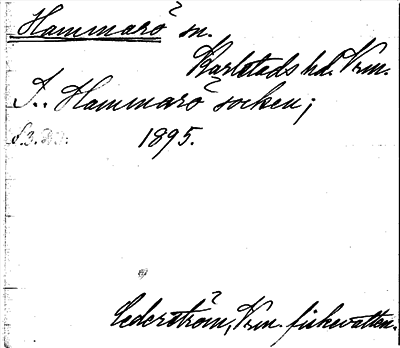 Hammarö sn.
Karlstads hd. Vrm.
I. Hammarö socken;
1895.
Cederström, Vrm. fiskevatten.